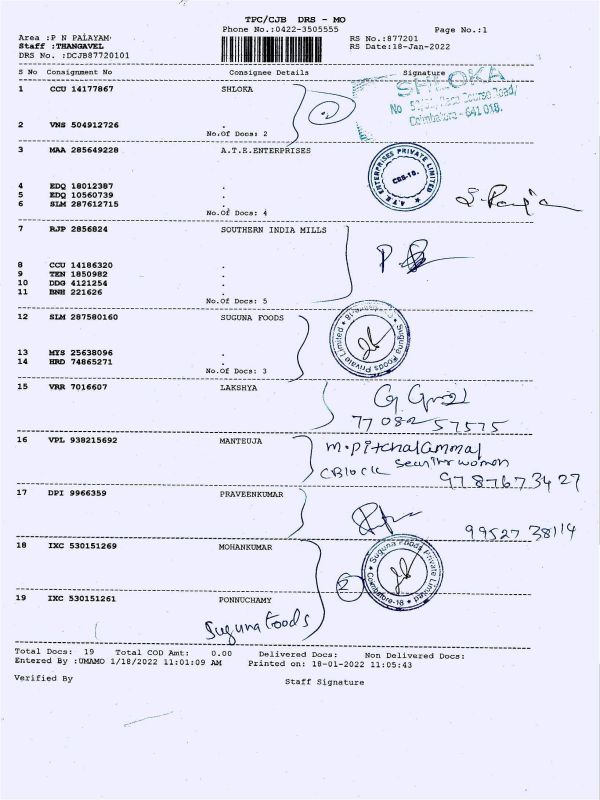 TPC/CJB DRS - MO
Phone No.:0422-3505555 Page No.:1
Area :P N PALAYAM RS No.:877201
Staff :THANGAVEL RS Date:18-Jan-2022
DRS No. :DCJB87720101
S No Consignment No Consignee Details Signature
1 CCU 14177867 SHLOKA
SHLOKA
Race Course Road,
Coimbatore - 641 018.
2 VNS 504912726 .
No.Of Docs: 2
3 MAA 285649228 A.T.E.ENTERPRISES
A.T.E ENTERPRISES PRIVATE LIMITED
CBS-18.
4 EDQ 18012387 .
5 EDQ 10560739 .
6 SLM 287612715 .
No.Of Docs: 4
7 RJP 2856824 SOUTHERN INDIA MILLS
8 CCU 14186320 .
9 TEN 1850982 .
10 DDG 4121254 .
11 BNH 221626 .
No.Of Docs: 5
12 SLM 287580160 SUGUNA FOODS
Suguna Foods Private Limited
13 MYS 25638096 .
14 HRD 74865271 .
No.Of Docs: 3
15 VRR 7016607 LAKSHYA
77082 57575
16 VPL 938215692 MANTEUJA
m.pitchaiammal
C Block women
9787673427
17 DPI 9966359 PRAVEENKUMAR
99527 38114
18 IXC 530151269 MOHANKUMAR
2
Suguna Foods Private Limited
Coimbatore-18
19 IXC 530151261 PONNUCHAMY
Suguna Foods
Total Docs: 19 Total COD Amt: 0.00 Delivered Docs: Non Delivered Docs:
Entered By :UMAMO 1/18/2022 11:01:09 AM Printed on: 18-01-2022 11:05:43
Verified By Staff Signature